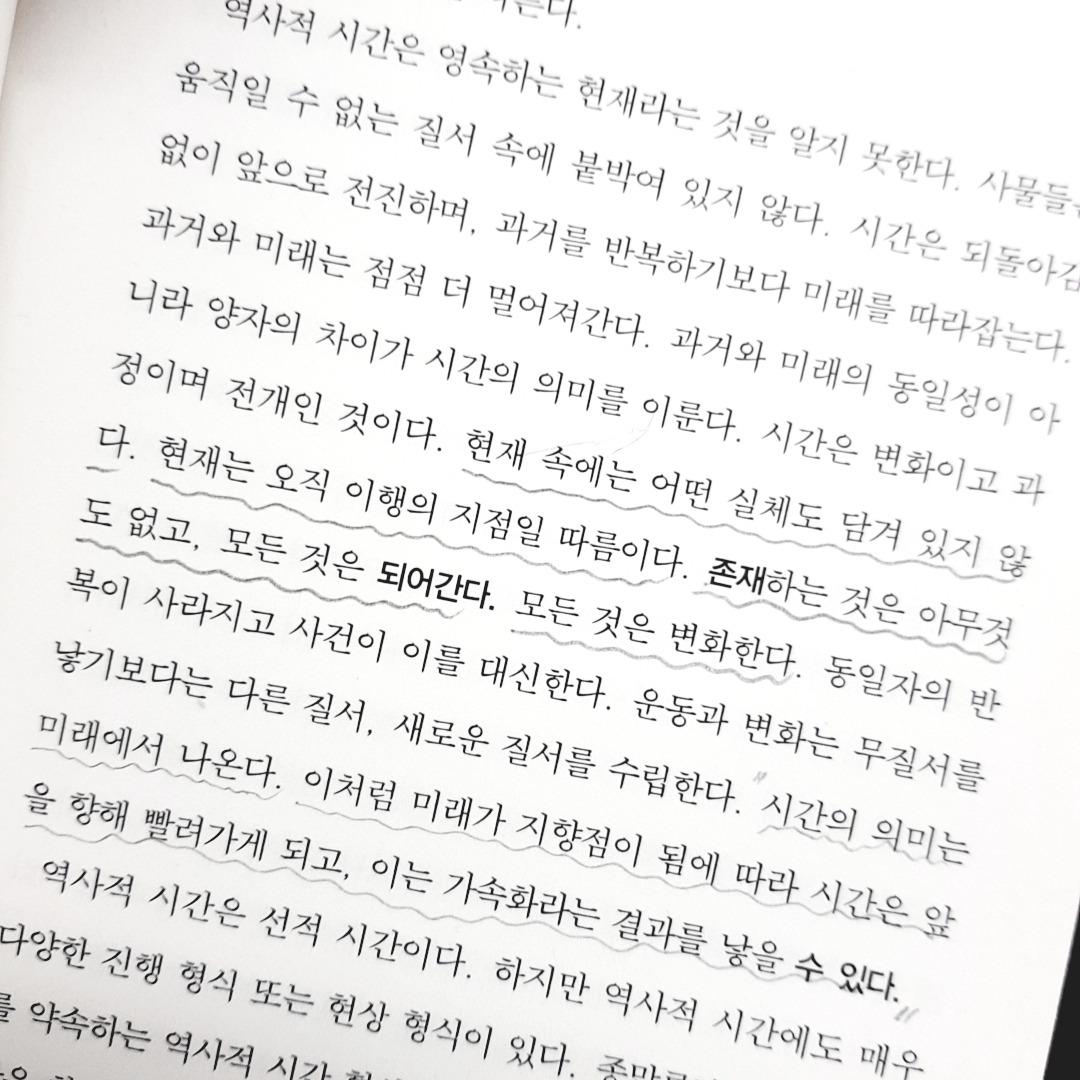 역사적 시간은 영속하는 현재라는 것을 알지 못한다. 사물들은
움직일 수 없는 질서 속에 붙박여 있지 않다. 시간은 되돌아감
없이 앞으로 전진하며, 과거를 반복하기보다 미래를 따라잡는다.
과거와 미래는 점점 더 멀어져간다. 과거와 미래의 동일성이 아
니라 양자의 차이가 시간의 의미를 이룬다. 시간은 변화이고 과
정이며 전개인 것이다. 현재 속에는 어떤 실체도 담겨 있지 않
다. 현재는 오직 이행의 지점일 따름이다. 존재하는 것은 아무것
도 없고, 모든 것은 되어간다. 모든 것은 변화한다. 동일자의 반
복이 사라지고 사건이 이를 대신한다. 운동과 변화는 무질서를
낳기보다는 다른 질서, 새로운 질서를 수립한다. "시간의 의미는
미래에서 나온다. 이처럼 미래가 지향점이 됨에 따라 시간은 앞
을 향해 빨려가게 되고, 이는 가속화라는 결과를 낳을 수 있다."
역사적 시간은 선적 시간이다. 하지만 역사적 시간에도 매우
다양한 진행 형식 또는 현상 형식이 있다.
를 약속하는 역사적 시간